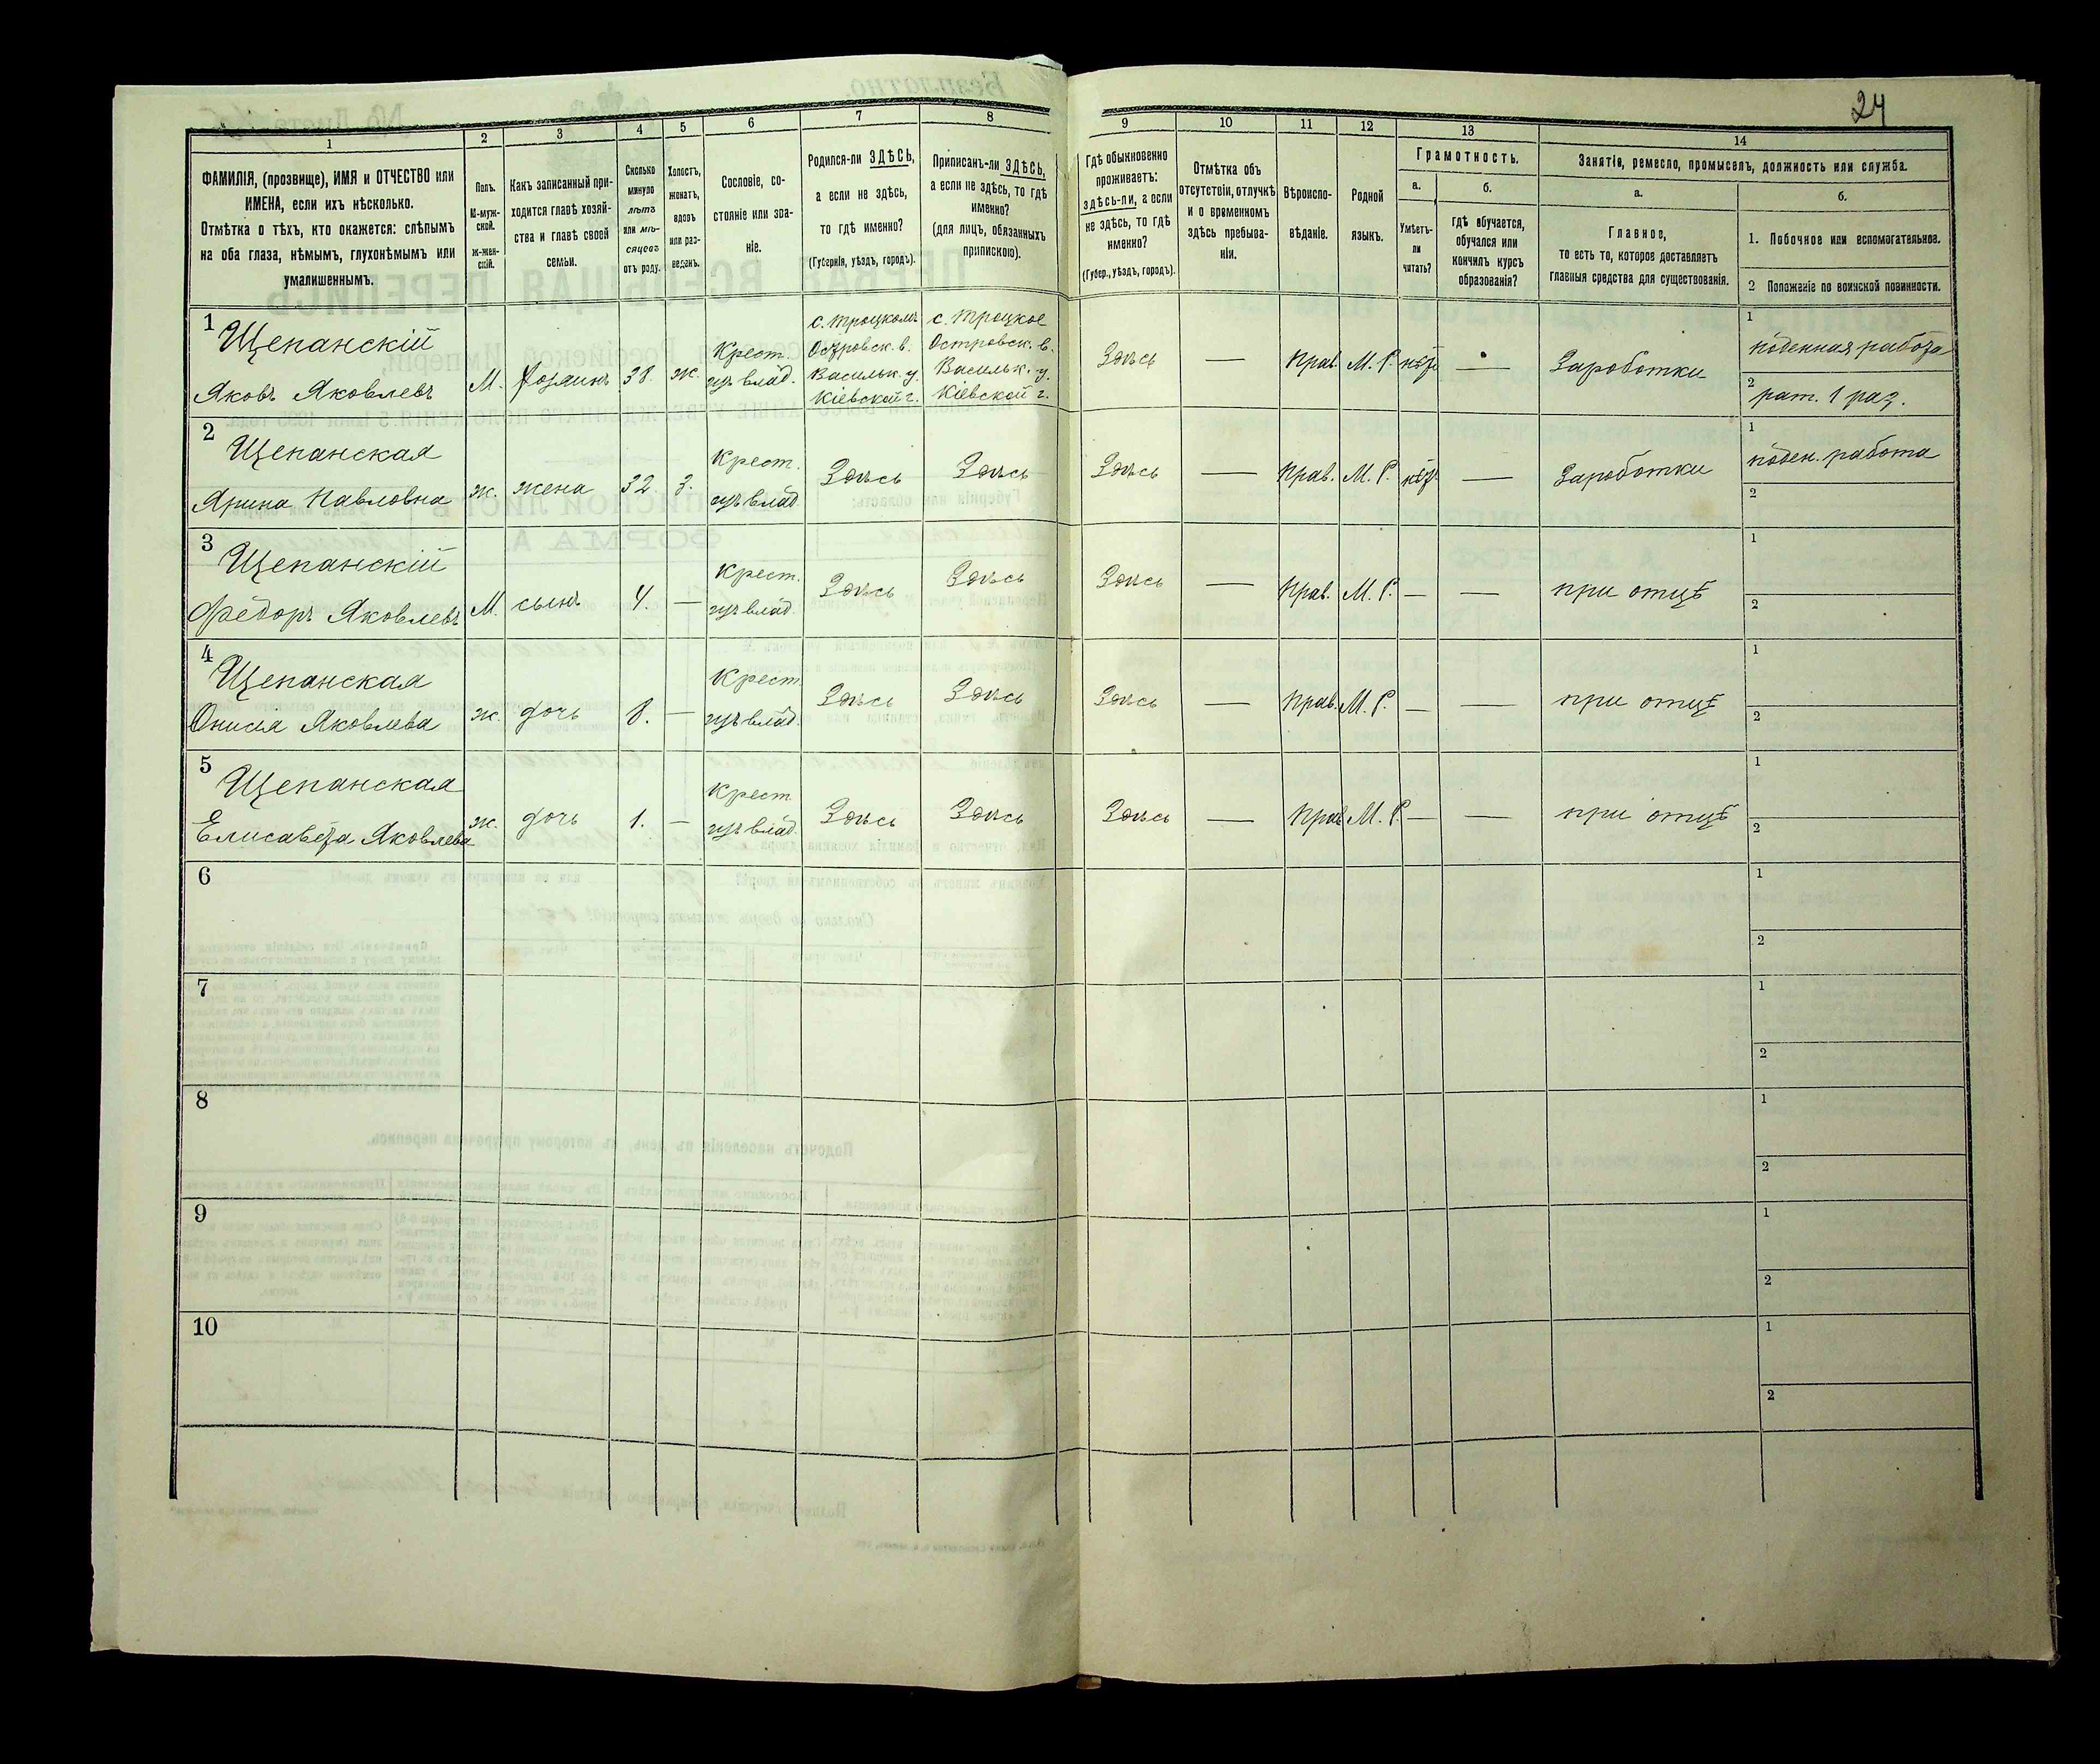 24
1
2
3
4
5
6
7
8
9
10
11
12
13
14
ФАМИЛІЯ, (прозвище), ИМЯ и ОТЧЕСТВО или
ИМЕНА, если ихъ нѣсколько.
Отмѣтка о тѣхъ, кто окажется: слѣпымъ
на оба глаза, нѣмымъ, глухонѣмымъ или
умалишеннымъ.
Полъ.
М-муж-
ской.
ж-жен-
скій.
Какъ записанный при-
ходится главѣ хозяй-
ства и главѣ своей
семьи.
Сколько
минуло
лѣтъ
или мѣ-
сяцевъ
отъ роду.
Холостъ,
женатъ,
вдовъ
или раз-
веденъ.
Сословіе, со-
стояніе или зва-
ніе.
Родился-ли ЗДѢСЬ,
а если не здѣсь,
то гдѣ именно?
(Губернія, уѣздъ, городъ).
Приписанъ-ли ЗДѢСЬ,
а если не здѣсь, то гдѣ
именно?
(для лицъ, обязанныхъ
припискою).
Гдѣ обыкновенно
проживаетъ:
здѣсь-ли, а если
не здѣсь, то гдѣ
именно?
(Губер., уѣздъ, городъ).
Отмѣтка объ
отсутствіи, отлучкѣ
и о временномъ
здѣсь пребыва-
ніи.
Вѣроиспо-
вѣданіе.
Родной
языкъ.
Грамотность.
а.
Умѣетъ-
ли
читать?
б.
гдѣ обучается,
обучался или
кончилъ курсъ
образованія?
Занятіе, ремесло, промыселъ, должность или служба.
а.
Главное,
то есть то, которое доставляетъ
главныя средства для существованія.
б.
1. Побочное или вспомогательное.
2 Положеніе по воинской повинности.
1 Щепанскій
Яковъ Яковлевъ
М.
хозяинъ
38.
ж.
Крест.
изъ влад.
с. Троцкомъ
Островск. в.
Васильк. у.
Кіевской г.
с. Троцкое
Островск. в.
Васильк. у.
Кіевской г.
Здѣсь
—
Прав.
М. Р.
нѣтъ
—
Заработки
1 поденная работа
2 рат. 1 раз.
2 Щепанская
Ярина Павловна
ж.
жена
32.
З.
Крест.
изъ влад.
Здѣсь
Здѣсь
Здѣсь
—
Прав.
М. Р.
нѣтъ
—
Заработки
1 поден. работа
2
3 Щепанскій
Федоръ Яковлевъ
М.
сынъ
4.
—
Крест.
изъ влад.
Здѣсь
Здѣсь
Здѣсь
—
Прав.
М. Р.
—
—
при отцѣ
1
2
4 Щепанская
Онисія Яковлева
ж.
дочь
8.
—
Крест.
изъ влад.
Здѣсь
Здѣсь
Здѣсь
—
Прав.
М. Р.
—
—
при отцѣ
1
2
5 Щепанская
Елисавета Яковлева
ж.
дочь
1.
—
Крест.
изъ влад.
Здѣсь
Здѣсь
Здѣсь
—
Прав.
М. Р.
—
—
при отцѣ
1
2
6
1
2
7
1
2
8
1
2
9
1
2
10
1
2